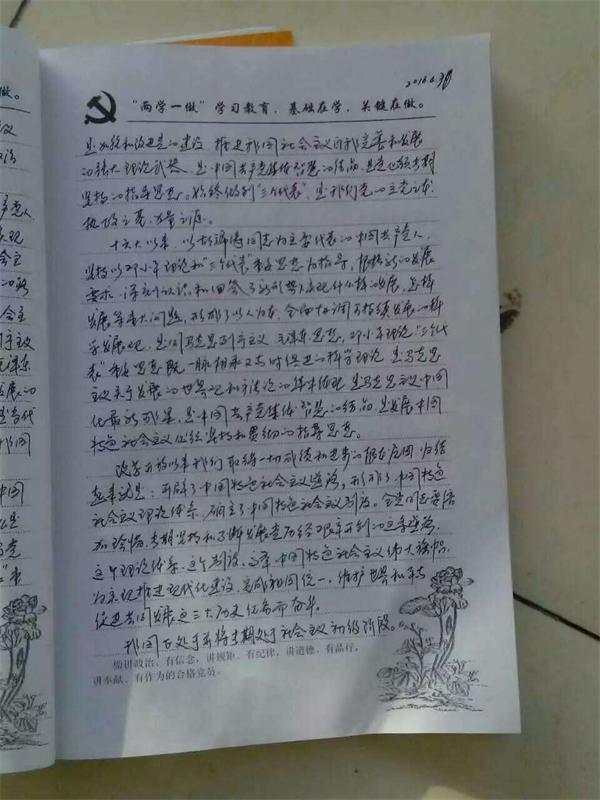 2016.6.3
"两学一做"学习教育,基础在学,关键在做。
是加强和改进党的建设 推进我国社会主义自我完善和发展
的强大理论武器、是中国共产党集体智慧的结晶,是党必须长期
坚持的指导思想。始终做到"三个代表",是我们党的立党之本、
执政之基、力量之源。
十六大以来,以胡锦涛同志为主要代表的中国共产党人,
坚持以邓小平理论和"三个代表"重要思想为指导,根据新的发展
要求,深刻认识和回答了新形势下实现什么样的发展、怎样
发展等重大问题,形成了以人为本、全面协调可持续发展的科
学发展观,是同马克思列宁主义、毛泽东思想、邓小平理论、"三个代
表"重要思想既一脉相承又与时俱进的科学理论 是马克思
主义关于发展的世界观和方法论的集中体现 是马克思主义中国
化最新成果,是中国共产党集体智慧的结晶,是发展中国
特色社会主义必须坚持和贯彻的指导思想。
改革开放以来我们取得一切成绩和进步的根本原因,归结
起来就是:开辟了中国特色社会主义道路,形成了中国特色
社会主义理论体系,确立了中国特色社会主义制度。全党同志要倍
加珍惜、长期坚持和不断发展党历经艰辛开创的这条道路、
这个理论体系、这个制度,高举中国特色社会主义伟大旗帜,
为实现推进现代化建设、完成祖国统一、维护世界和平与
促进共同发展这三大历史任务而奋斗。
我国正处于并将长期处于社会主义初级阶段。
做讲政治、有信念,讲规矩、有纪律,讲道德、有品行,
讲奉献、有作为的合格党员。